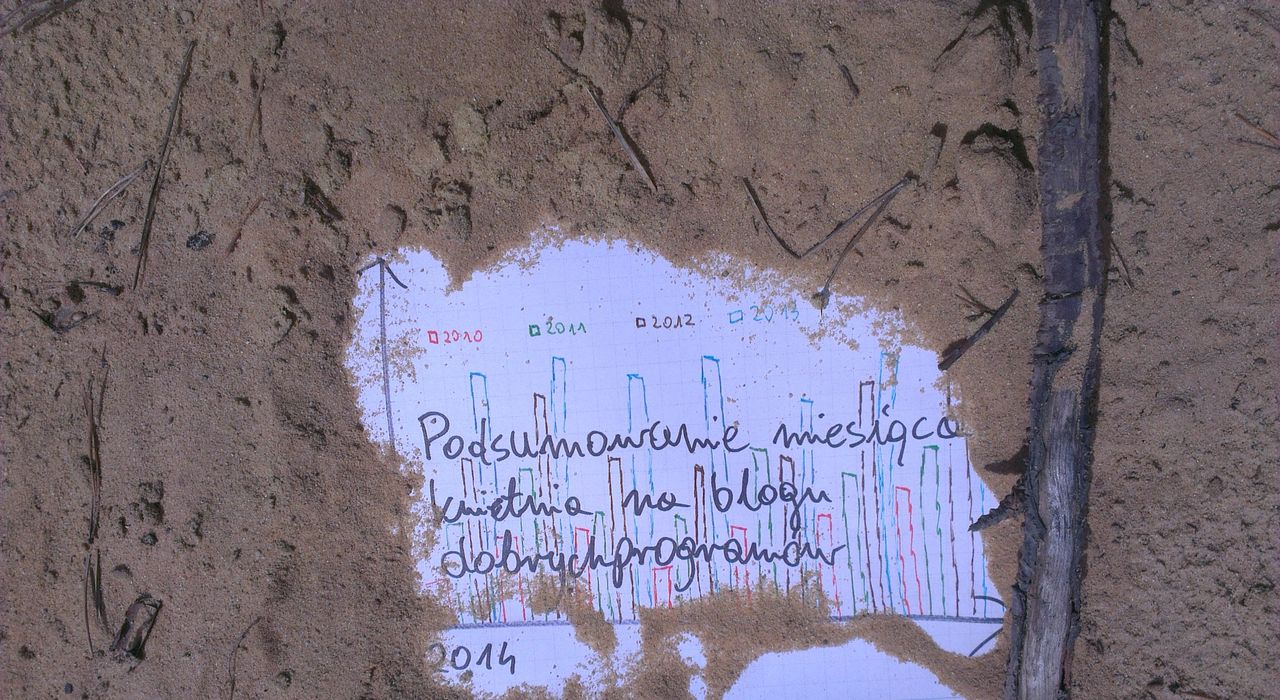 2010 2011 2012 2013
Podsumowanie miesiąca
kwietnia na blogu
dobrychprogramów
2014